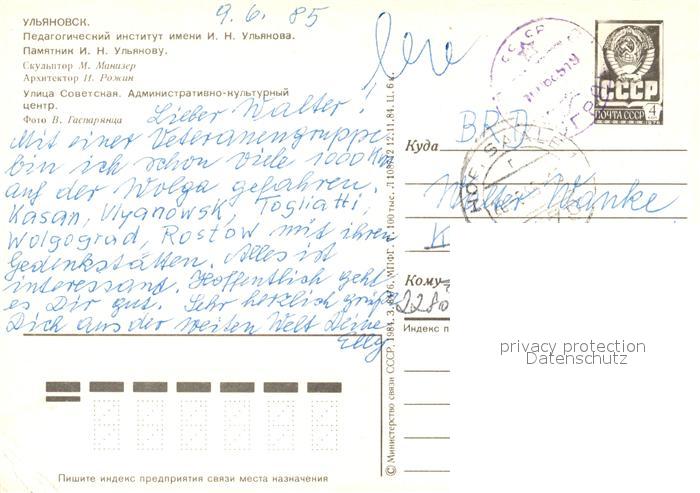 9.6.85
УЛЬЯНОВСК.
Педагогический институт имени И. Н. Ульянова.
Памятник И. Н. Ульянову.
Скульптор М. Манизер
Архитектор И. Рожин
Улица Советская. Административно-культурный
центр.
Фото В. Гаспарянца
Lieber Walter!
Mit einer Veteranengruppe
bin ich schon viele 1000 Km
auf der Wolga gefahren.
Kasan, Ulyanowsk, Togliatti,
Wolgograd, Rostow mit ihren
Gedenkstätten. Alles ist
interessant. Hoffentlich geht
es Dir gut. Sehr herzlich grüßt
Dich aus der weiten Welt Deine
Elly
Пишите индекс предприятия связи места назначения
© Министерство связи СССР, 1984. МПФГ. 100 тыс. 12.11.84. Ц. 6 к.
СССР
ПОЧТА СССР 4
Куда
BRD
Walter Wanke
K
Кому
Индекс п
privacy protection
Datenschutz